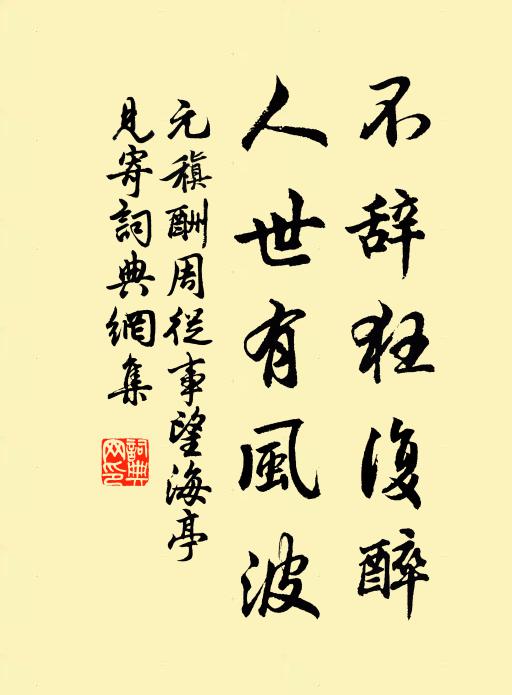 不辞狂復醉
人世有風波
元稹酬周從事望海亭
見寄詞典網集
詞典
网印